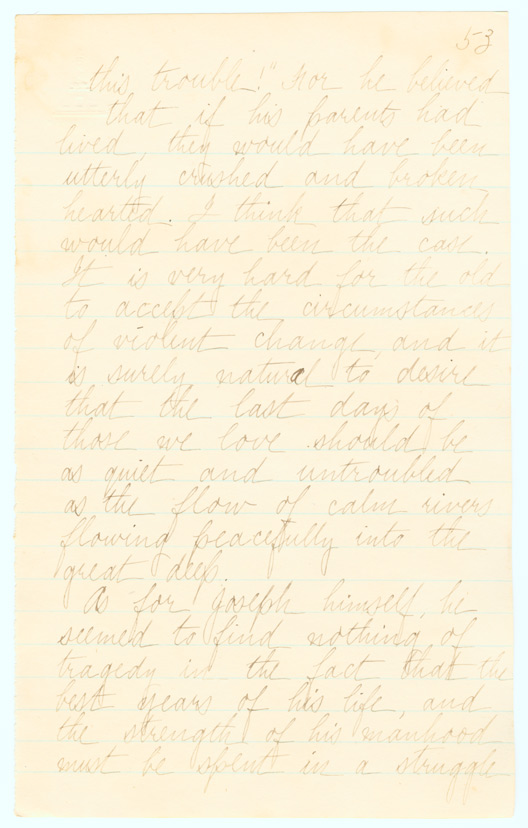 53
this trouble!" For he believed
that if his parents had
lived, they would have been
utterly crushed and broken
hearted. I think that such
would have been the case.
It is very hard for the old
to accept the circumstances
of violent change, and it
is surely natural to desire
that the last days of
those we love should be
as quiet and untroubled
as the flow of calm rivers
flowing peacefully into the
great deep.
As for Joseph himself, he
seemed to find nothing of
tragedy in the fact that the
best years of his life, and
the strength of his manhood
must be spent in a struggle